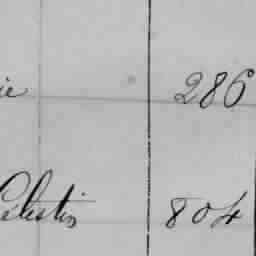 ie 286
Célestin 804